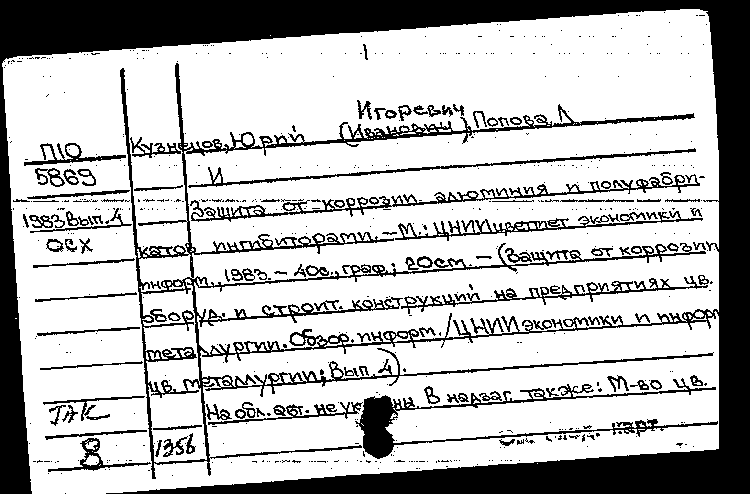 1
Игоревич
П10 Кузнецов, Юрий (Иванович), Попова, Л
5869 И
1983 Вып. 4 Защита от коррозии алюминия и полуфабри-
осх катов ингибиторами. – М.: ЦНИИцветмет экономики и
информ., 1983. – 40с., граф.; 20см. – (Защита от коррозии
оборуд. и строит. конструкций на предприятиях цв.
металлургии. Обзор. информ./ЦНИИ экономики и информ
цв. металлургии; Вып. 4).
JAK На обл. авт. не указаны. В надзаг. также: М-во цв.
8 1356 карт.